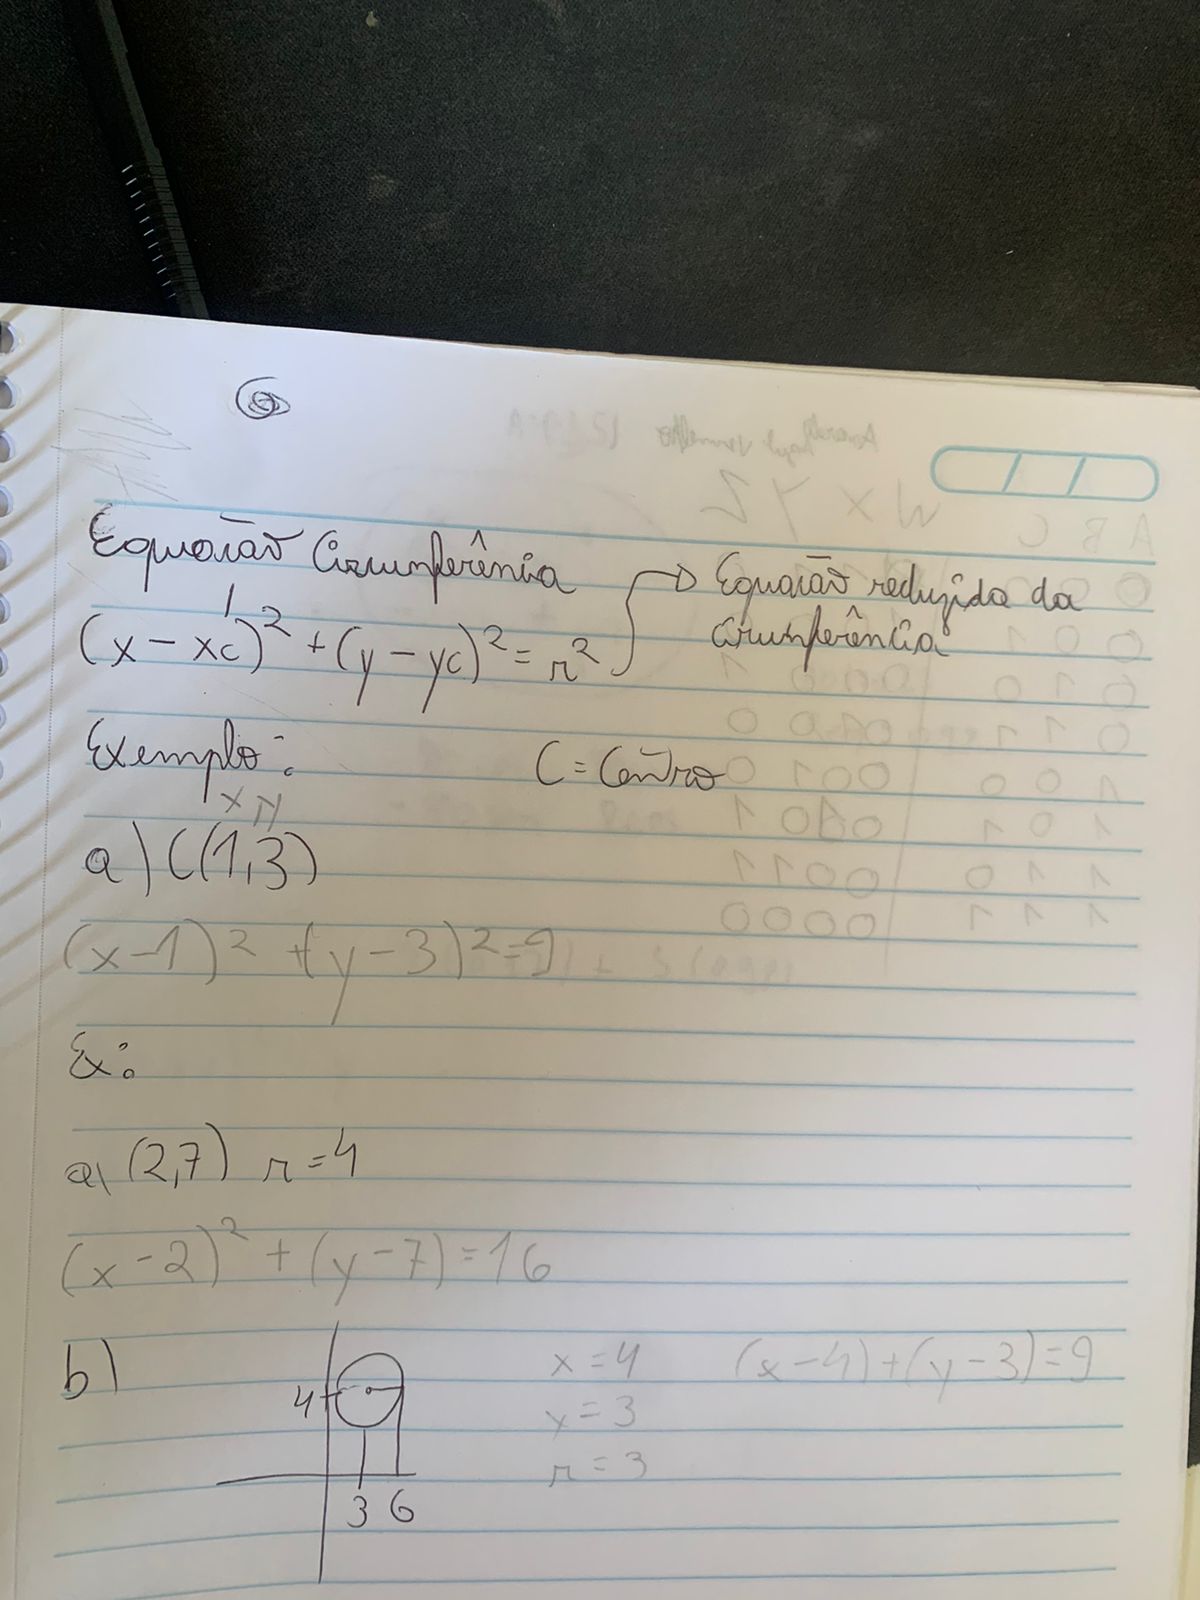 Equação Circunferência
(x - xc)² + (y - yc)² = r² → Equação reduzida da
circunferência
Exemplo: C = Centro
x y
a) C(1,3)
(x-1)² + (y-3)² = 9
Ex:
a) (2,7) r = 4
(x-2)² + (y-7) = 16
b)
4
3 6
x = 4 (x-4)+(y-3)=9
y = 3
r = 3